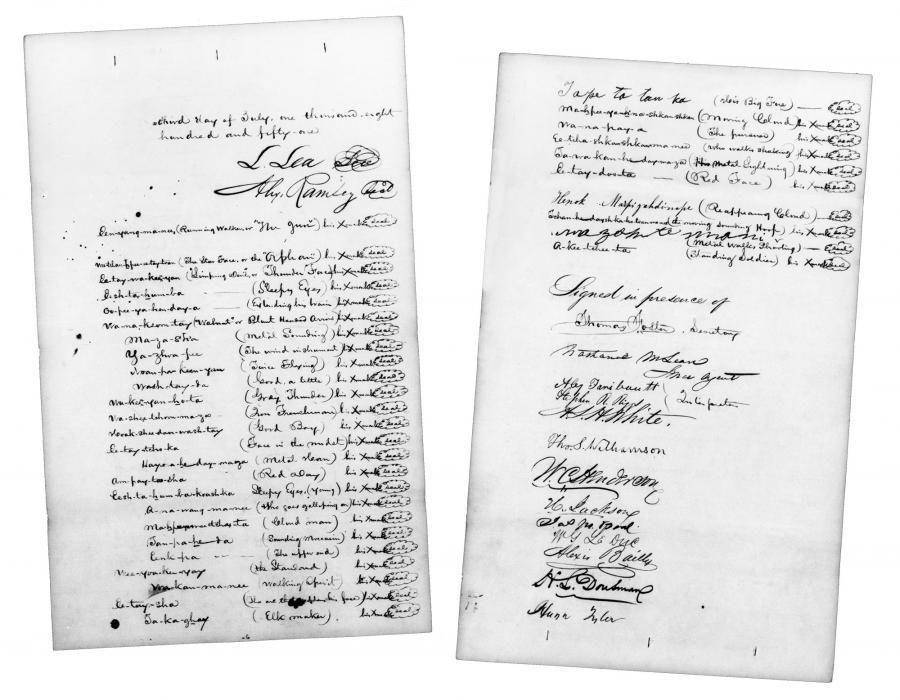 third day of July, one thousand eight
hundred and fifty-one
L. Lea Seal
Alex. Ramsey Seal
Een-yang-ma-nee, (Running Walker, or "The Gun") his X mark Seal
(The Star Face, or the "Orphan") his X mark Seal
Ee-tay-wa-keen-yan ("Limping Devil" or Thunder Face) his X mark Seal
Eesh-ta-hum-ba (Sleepy Eyes) his X mark Seal
Oo-pee-ya-hen-day-a (Extending his train) his X mark Seal
Wa-na-keen-tay "Walnut" or Blunt Headed Arrow his X mark Seal
Ma-za-sha (Metal Sounding) his X mark Seal
Ya-zhoo-pee (The wind instrument) his X mark Seal
(Twice Flying) his X mark Seal
Wash-tay-da (Good, a little) his X mark Seal
Wa-keen-yan-ho-ta (Gray Thunder) his X mark Seal
Wa-shee-tchoon-ma-za (Iron Frenchman) his X mark Seal
Hoak-shee-dan-wash-tay (Good Boy) his X mark Seal
Ee-tay-tcho-ka (Face in the midst) his X mark Seal
Hay-o-hen-day-ma-za (Metal Horn) his X mark Seal
Am-pay-too-sha (Red Day) his X mark Seal
Eesh-ta-hum-ba-koash-ka Sleepy Eyes, (young) his X mark Seal
A-na-wang-ma-nee (Who goes galloping on) his X mark Seal
(Cloud man) his X mark Seal
Tan-pa-hee-da (Sounding Moccasin) his X mark Seal
Eenk-pa (The upper end) his X mark Seal
Wee-yoa-kee-yay (The Standard) his X mark Seal
Wa-kan-ma-nee (Walking Spirit) his X mark Seal
Ee-tay-sha (The one that reddens his face) his X mark Seal
Ta-ka-ghay (Elk maker) his X mark Seal
Tape ta tan ka (His Big Fire) Seal
Ma-hpee-ya-shkan-shkan (Moving Cloud) his X mark Seal
Wa-na-pay-a (The pursuer) his X mark Seal
Ee-tcha-shkan-shkan-ma-nee (Who walks shaking) his X mark Seal
Ta-wa-kan-he-day-ma-za (His Metal Lightning) his X mark Seal
Ee-tay-doo-ta (Red Face) his X mark Seal
Henok Marpiyahdinape (Reappearing Cloud) Seal
the moving sounding Harp
Mazaku te mani (Metal Walks Shooting) Seal
A-kee-tchee-ta (Standing Soldier) his X mark Seal
Signed in presence of
Thomas Foster, Secretary
Nathaniel McLean
Indian Agent
Alex Faribault
Stephen R. Riggs Interpreters
A. S. H. White.
Tho. S. Williamson
W. C. Henderson
A. Jackson
W. G. Le Duc
Alexis Bailly
H. L. Dousman
Hugh Tyler